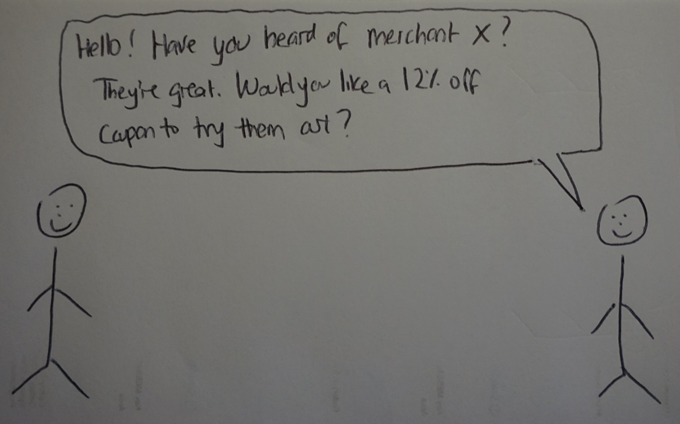 Hello! Have you heard of merchant X?
They're great. Would you like a 12% off
Capon to try them out?